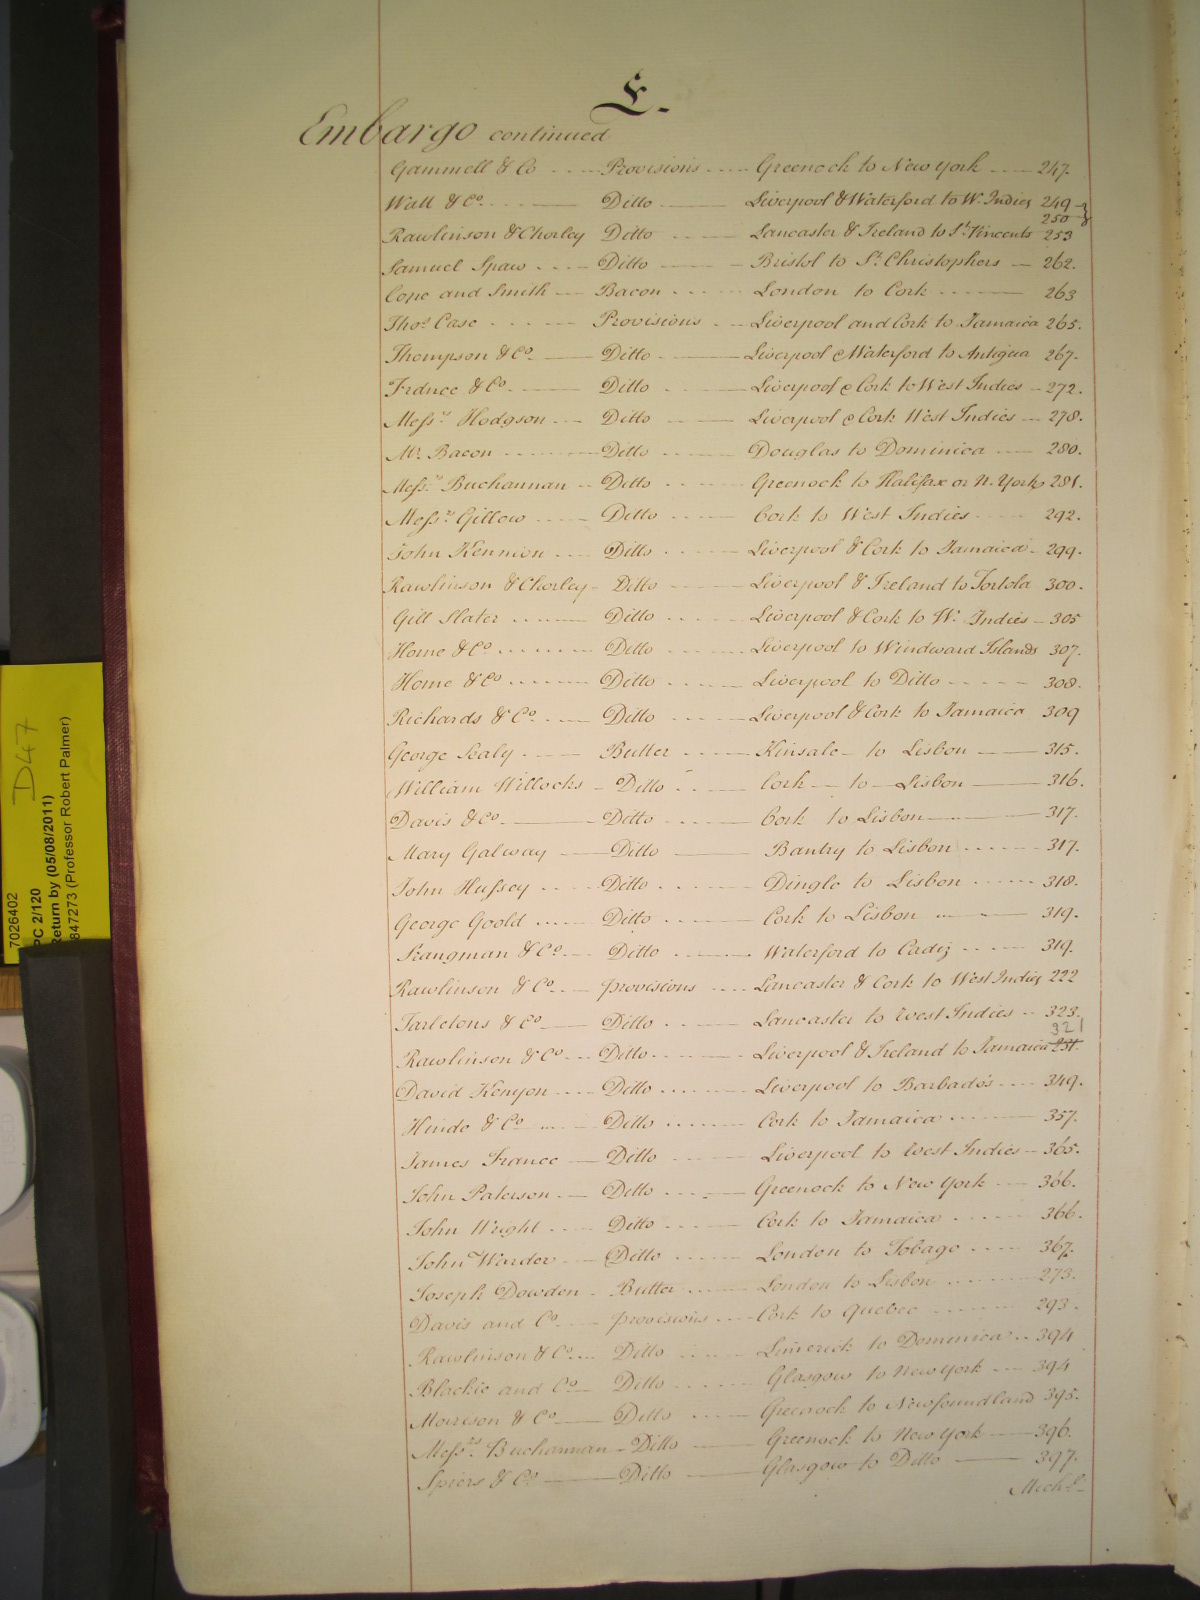 E.
Embargo continued
Gammell & Co Provisions Greenock to New York 247.
Watt & Co. Ditto Liverpool & Waterford to W. Indies 249
250
Rawlinson & Chorley Ditto Lancaster & Ireland to St. Vincents 253
Samuel Span Ditto Bristol to St. Christophers 262.
Cope and Smith Bacon London to Cork 263
Thos. Case Provisions Liverpool and Cork to Jamaica 265.
Thompson & Co. Ditto Liverpool & Waterford to Antigua 267.
France & Co. Ditto Liverpool & Cork to West Indies 272.
Messrs. Hodgson Ditto Liverpool & Cork West Indies 278.
Mr. Bacon Ditto Douglas to Dominica 280.
Messrs. Buchannan Ditto Greenock to Halifax or N. York 281.
Messrs. Gillow Ditto Cork to West Indies 292.
John Kennion Ditto Liverpool & Cork to Jamaica 299.
Rawlinson & Chorley Ditto Liverpool & Ireland to Tortola 300.
Gill Slater Ditto Liverpool & Cork to W. Indies 305
Home & Co. Ditto Liverpool to Windward Islands 307.
Home & Co. Ditto Liverpool to Ditto 308.
Richards & Co. Ditto Liverpool & Cork to Jamaica 309
George Sealy Butter Kinsale to Lisbon 315.
William Willocks Ditto Cork to Lisbon 316.
Davis & Co. Ditto Cork to Lisbon 317.
Mary Galway Ditto Bantry to Lisbon 317.
John Hussey Ditto Dingle to Lisbon 318.
George Goold Ditto Cork to Lisbon 319.
Strangman & Co. Ditto Waterford to Cadiz 319.
Rawlinson & Co. provisions Lancaster & Cork to West Indies 222
Tarletons & Co Ditto Lancaster to West Indies 323.
321
Rawlinson & Co Ditto Liverpool & Ireland to Jamaica
David Kenyon Ditto Liverpool to Barbados 349.
Hinde & Co Ditto Cork to Jamaica 357.
James France Ditto Liverpool to West Indies 365.
John Paterson Ditto Greenock to New York 366.
John Wright Ditto Cork to Jamaica 366.
John Warder Ditto London to Tobago 367.
Joseph Dowden Butter London to Lisbon 273.
Davis and Co. provisions Cork to Quebec 293.
Rawlinson & Co. Ditto Limerick to Dominica 394
Blackie and Co. Ditto Glasgow to New York 394
Morrison & Co. Ditto Greenock to Newfoundland 395.
Messrs. Buchannan Ditto Greenock to New York 396.
Spiers & Co. Ditto Glasgow to Ditto 397.
D47
7026402
PC 2/120
Return by (05/08/2011)
847273 (Professor Robert Palmer)